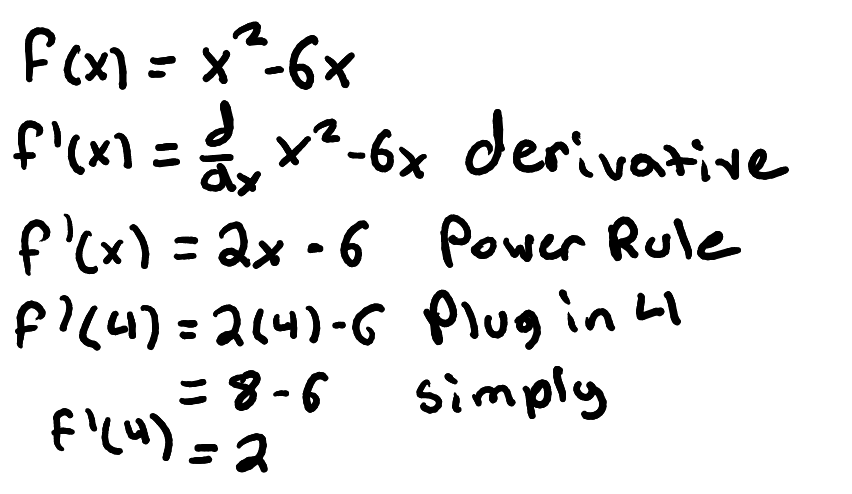 f(x) = x²-6x
f'(x) = d/dx x²-6x derivative
f'(x) = 2x - 6 Power Rule
f'(4) = 2(4)-6 Plug in 4
= 8-6 simply
f'(4) = 2